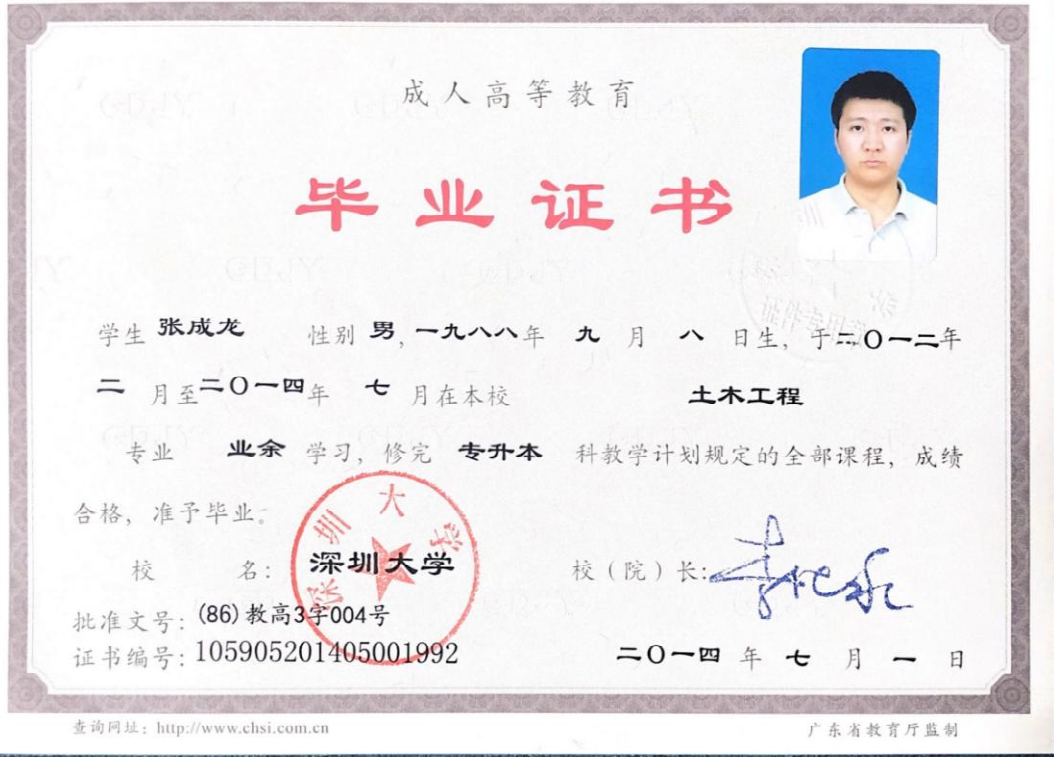 成人高等教育
毕业证书
学生 张成龙 性别 男，一九八八年 九 月 八 日生，于二〇一二年
二 月至二〇一四年 七 月在本校 土木工程
专业 业余 学习，修完 专升本 科教学计划规定的全部课程，成绩
合格，准予毕业。
深圳大学
校 名：深圳大学 校（院）长：
批准文号：(86)教高3字004号
证书编号：105905201405001992 二〇一四 年 七 月 一 日
查询网址：http://www.chsi.com.cn 广东省教育厅监制